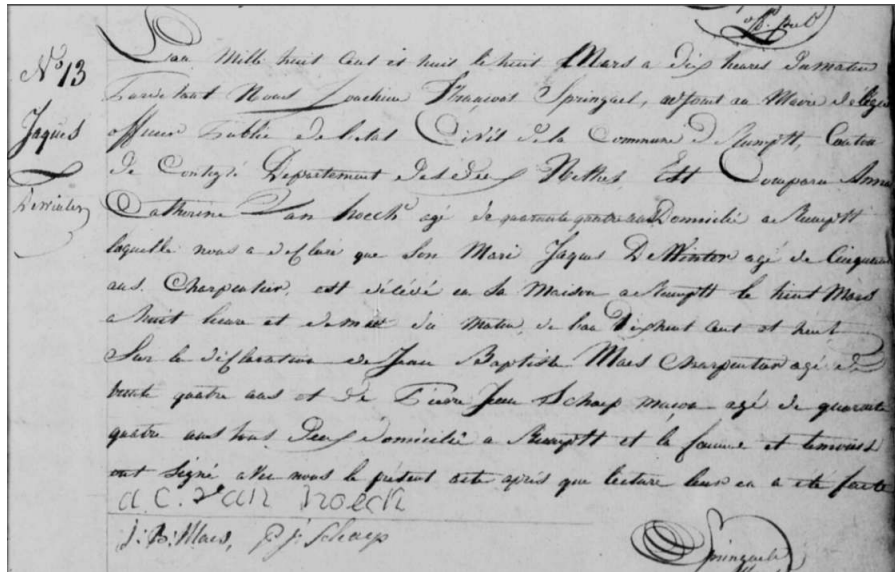 off. publ
N.º 13
Jaques
DeWinter
L'an mille huit cent et huit le huit Mars a dix heures du matin
Pardevant Nous Joachim François Springael, adjoint au Maire délégué
officier Public de l'etat Civil de la Commune de Rumpst, Canton
de Contigé Departement des deux Nethes, Est Comparu Anne
Catherine Van hoeck agé de quarante quatre ans Domicilié a Rumpst
laquelle nous a déclaré que son Mari Jaques DeWinter agé de Cinquante
ans. Charpentier, est décédé en sa Maison a Rumpst le huit Mars
a huit heure et demie du matin, de l'an Dixhuit cent et huit
Sur la déclaration de Jean Baptiste Maes Charpentier agé de
trente quatre ans et de Pierre Jean Schaep maçon agé de quarante
quatre ans tous Deux domicilié a Rumpst et la femme et temoins
ont signé avec nous le présent acte après que lecture leur en a été faite
a.c. van hoeck
J: B: Maes, P: J: Schaep
Springael